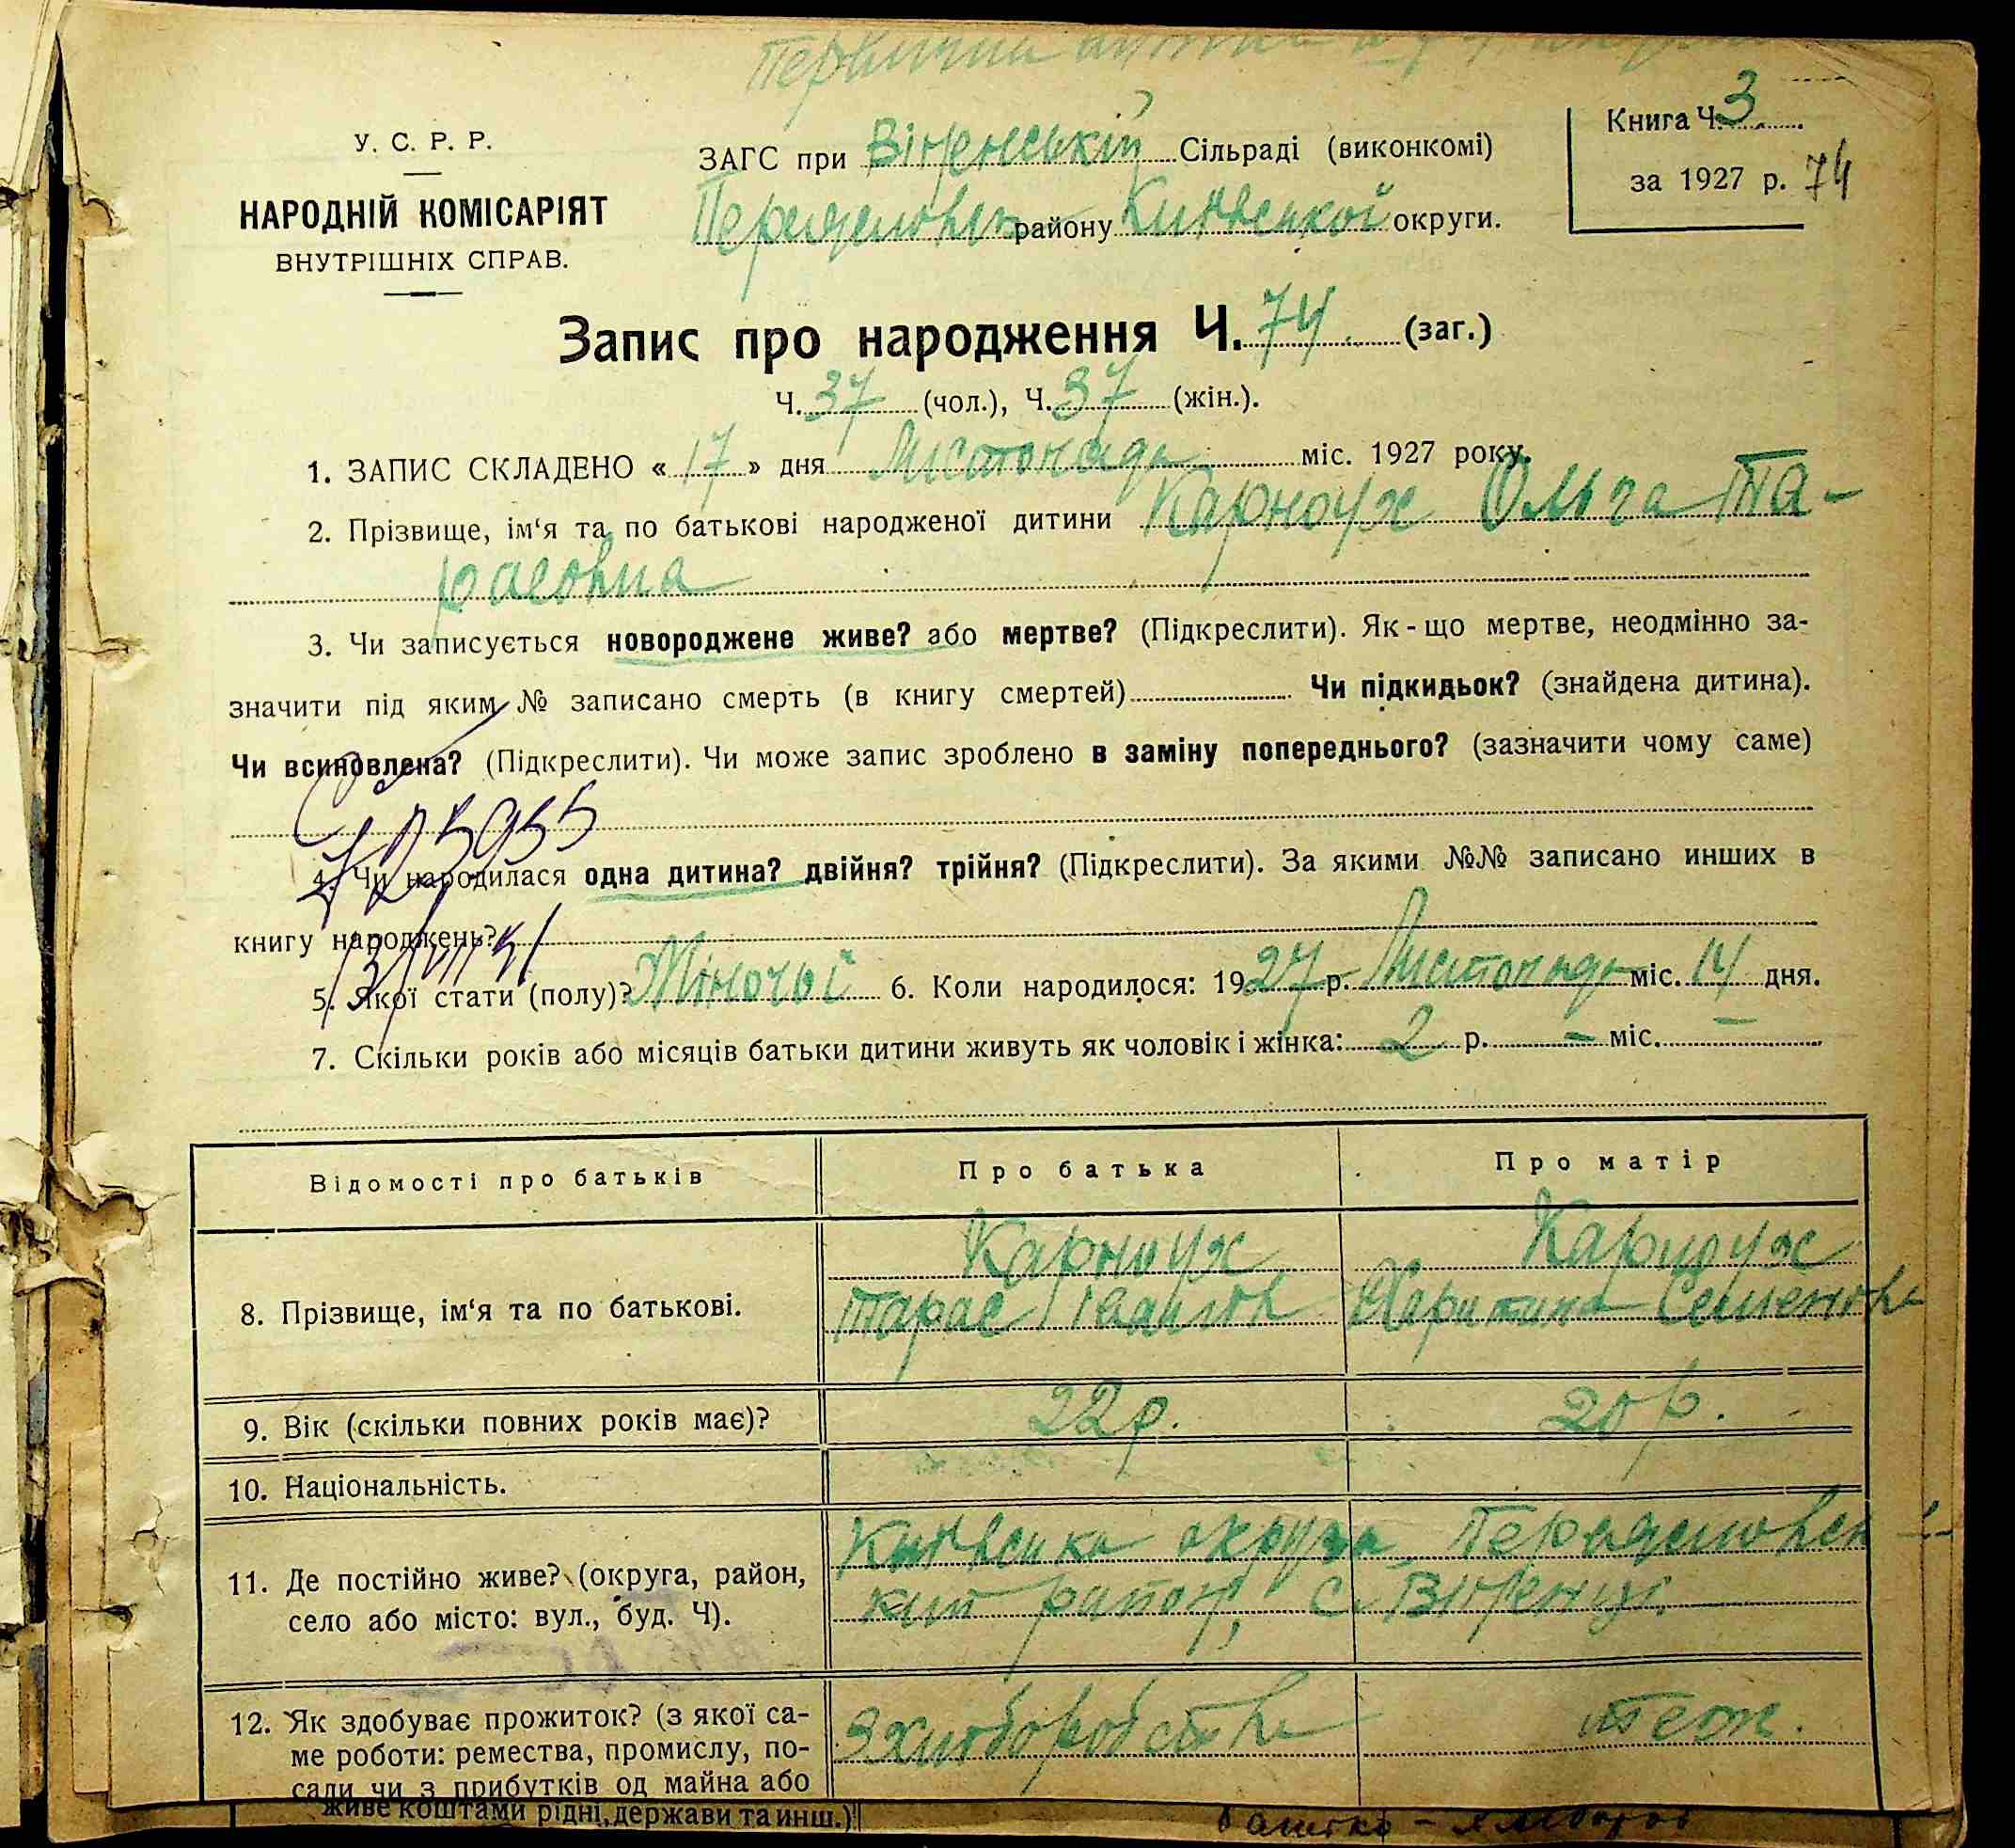 Книга Ч. 3
за 1927 р. 74
У. С. Р. Р.
НАРОДНІЙ КОМІСАРІЯТ
ВНУТРІШНІХ СПРАВ.
ЗАГС при Сільраді (виконкомі)
району округи.
Запис про народження Ч. 74 (заг.)
Ч. 37 (чол.), Ч. 37 (жін.).
1. ЗАПИС СКЛАДЕНО « 17 » дня Листопада міс. 1927 року.
2. Прізвище, ім'я та по батькові народженої дитини Карноух Ольга Та-
расовна
3. Чи записується новороджене живе? або мертве? (Підкреслити). Як-що мертве, неодмінно за-
значити під яким № записано смерть (в книгу смертей) Чи підкидьок? (знайдена дитина).
Чи всиновлена? (Підкреслити). Чи може запис зроблено в заміну попереднього? (зазначити чому саме)
4. Чи народилася одна дитина? двійня? трійня? (Підкреслити). За якими №№ записано инших в
книгу народжень?
5. Якої стати (полу)? Жіночої 6. Коли народилося: 1927 р. Листопада міс. 14 дня.
7. Скільки років або місяців батьки дитини живуть як чоловік і жінка: 2 р. – міс. –
Відомості про батьків Про батька Про матір
8. Прізвище, ім'я та по батькові.
Карноух
Тарас
Карноух
Харитина Семеновна
9. Вік (скільки повних років має)? 22 р. 20 р.
10. Національність.
11. Де постійно живе? (округа, район,
село або місто: вул., буд. Ч).
округа
район, с.
12. Як здобуває прожиток? (з якої са-
ме роботи: ремества, промислу, по-
сади чи з прибутків од майна або
З хліборобства теж.
живе коштами рідні, держави та инш.)
батько – хлібороб